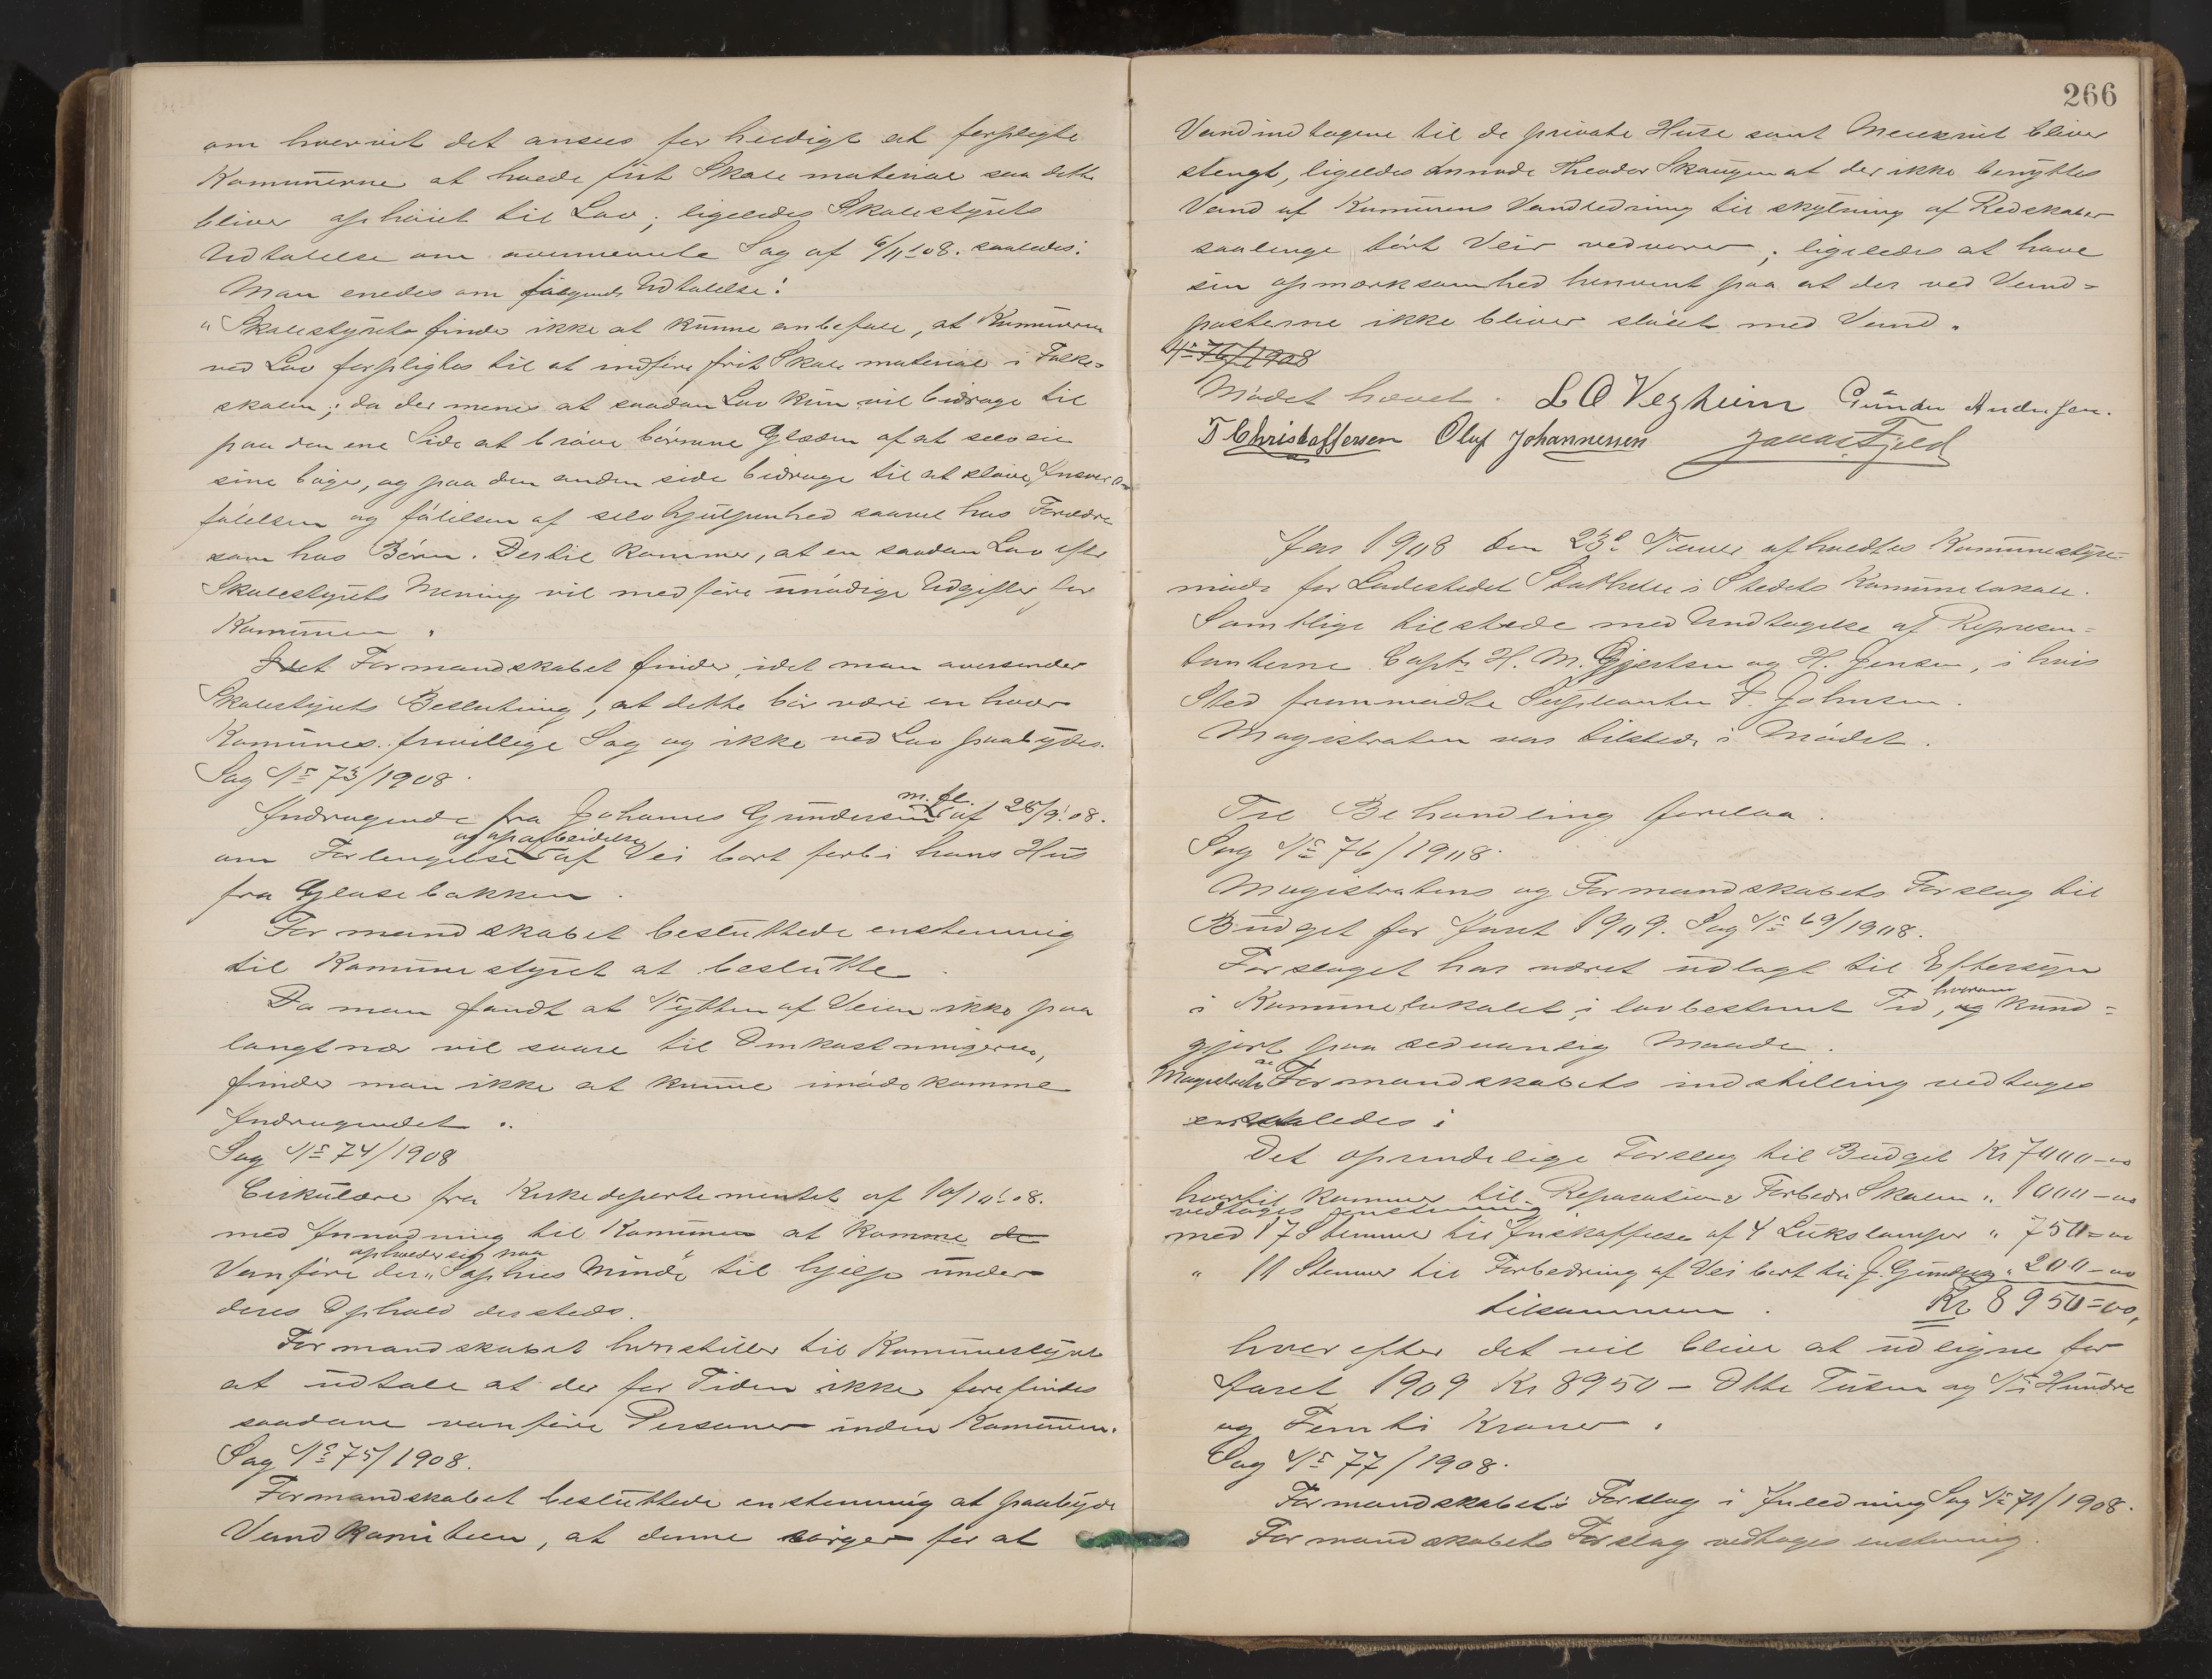 om hvorvidt det ansees for heldigt at forpligte
Komunerne at holde frit Skole materiel saa dette
bliver ophöiet til Lov; ligeledes Skolestyrets
Udtalelse om ovennevnte Sag af 6/11-08. saaledes:
Man enedes om følgende Udtalelse:
"Skolestyret finder ikke at kunne anbefale, at Komunerne
ved Lov forpligtes til at indføre frit Skole materiel i Folke=
skolen; da der menes at saadan Lov kun vil bidrage til
paa den ene Side at beröve börnene Glæden af at selv eie
sine böger, og paa den anden side bidrage til at slöve Ansvars=
fölelsen og fölelsen af selvhjulpenhed saavel hos Forældre
som hos Börn. Dertil kommer, at en saadan Lov efter
Skolestyrets Mening vil medføre unödige Udgifter for
Kommunen.
Formandskabet finder, idet man oversender
Skolestyrets Beslutning, at dette bör være en hver
Komunes frivillige Sag og ikke ved Lov paabydes.
Sag No 73/1908.
Andragende fra Johannes Gundersen m. fl. af 25/9.08.
om Forlengelse og oparbeidelse af Vei bort forbi hans Hus
fra Gjeusebakken.
Formandskabet besluttede enstemmig
til Komunestyret at beslutte
Da man fandt at Nytten af Veien ikke paa
langt nær vil svare til Omkostningerne,
finder man ikke at kunne imödekomme
Andragendet.
Sag No 74/1908
Cirkulære fra Kirkedepartementet af 10/10.08.
med Anmodning til Komunen at komme de
Vanföre der opholder sig paa "Sophies Minde" til hjelp under
deres Ophold dersteds.
Formandskabet henstiller til Komunestyret
at udtale at der for Tiden ikke forefindes
saadane vanföre Personer inden Komunen.
Sag No 75/1908.
Formandskabet besluttede enstemmig at paabyde
Vandkomiteen, at denne sörger for at
266
Vandindtagene til de private Huse samt Meieriet bliver
stengt, ligeledes anmode Theodor Skaugen at der ikke benyttes
Vand af Komunens Vandledning til skylning af Redskaber
saalenge tört Veir vedvarer; ligeledes at have
sin opmerksomhed henvent paa at der ved Vand=
posterne ikke bliver slöset med Vand.
No 76/1908
Mödet hævet. L O Vegheim Gunder Andersen.
T Christoffersen Oluf Johannesen Fjeld
Aar 1908 den 23de Novbr afholdtes Komunestyre=
möde for Ladestedet Stathelle i Stedets Komunelokale.
Samtlige tilstede med Undtagelse af Represen=
tanterne Capt. H. M. Gjertsen og H. Jensen, i hvis
Sted fremmödte Supleanten P. Johnsen.
Magistraten var tilstede i Mödet.
Til Behandling forelaa.
Sag No 76/1908.
Magistratens og Formandskabets Forslag til
Budget for Aaret 1909. Sag No 69/1908.
Forslaget har været udlagt til Eftersyn
i Komunelokalet i lovbestemt Tid, og hvorom kund=
gjort paa sedvanlig Maade.
Magistratens og Formandskabets indstilling vedtages
saaledes:
Det oprindelige Forslag til Budget Kr 7000-00
hvortil kommer til Reparation & Forbedr Skolen " 1000-00
vedtages enstemmig
med 17 Stemmer til Anskaffelse af 4 Lukslamper " 750=00
" 11 Stemmer til Forbedring af Vei bort til J. Gundersen " 200-00
tilsammen. Kr 8950=00,
hvorefter det vil blive at udligne for
Aaret 1909 Kr 8950 - Otte Tusen og Ni Hundre
og Femti Kroner.
Sag No 77/1908.
Formandskabets Forslag i Anledning Sag No 71/1908.
Formandskabets Forslag vedtages enstemmig.